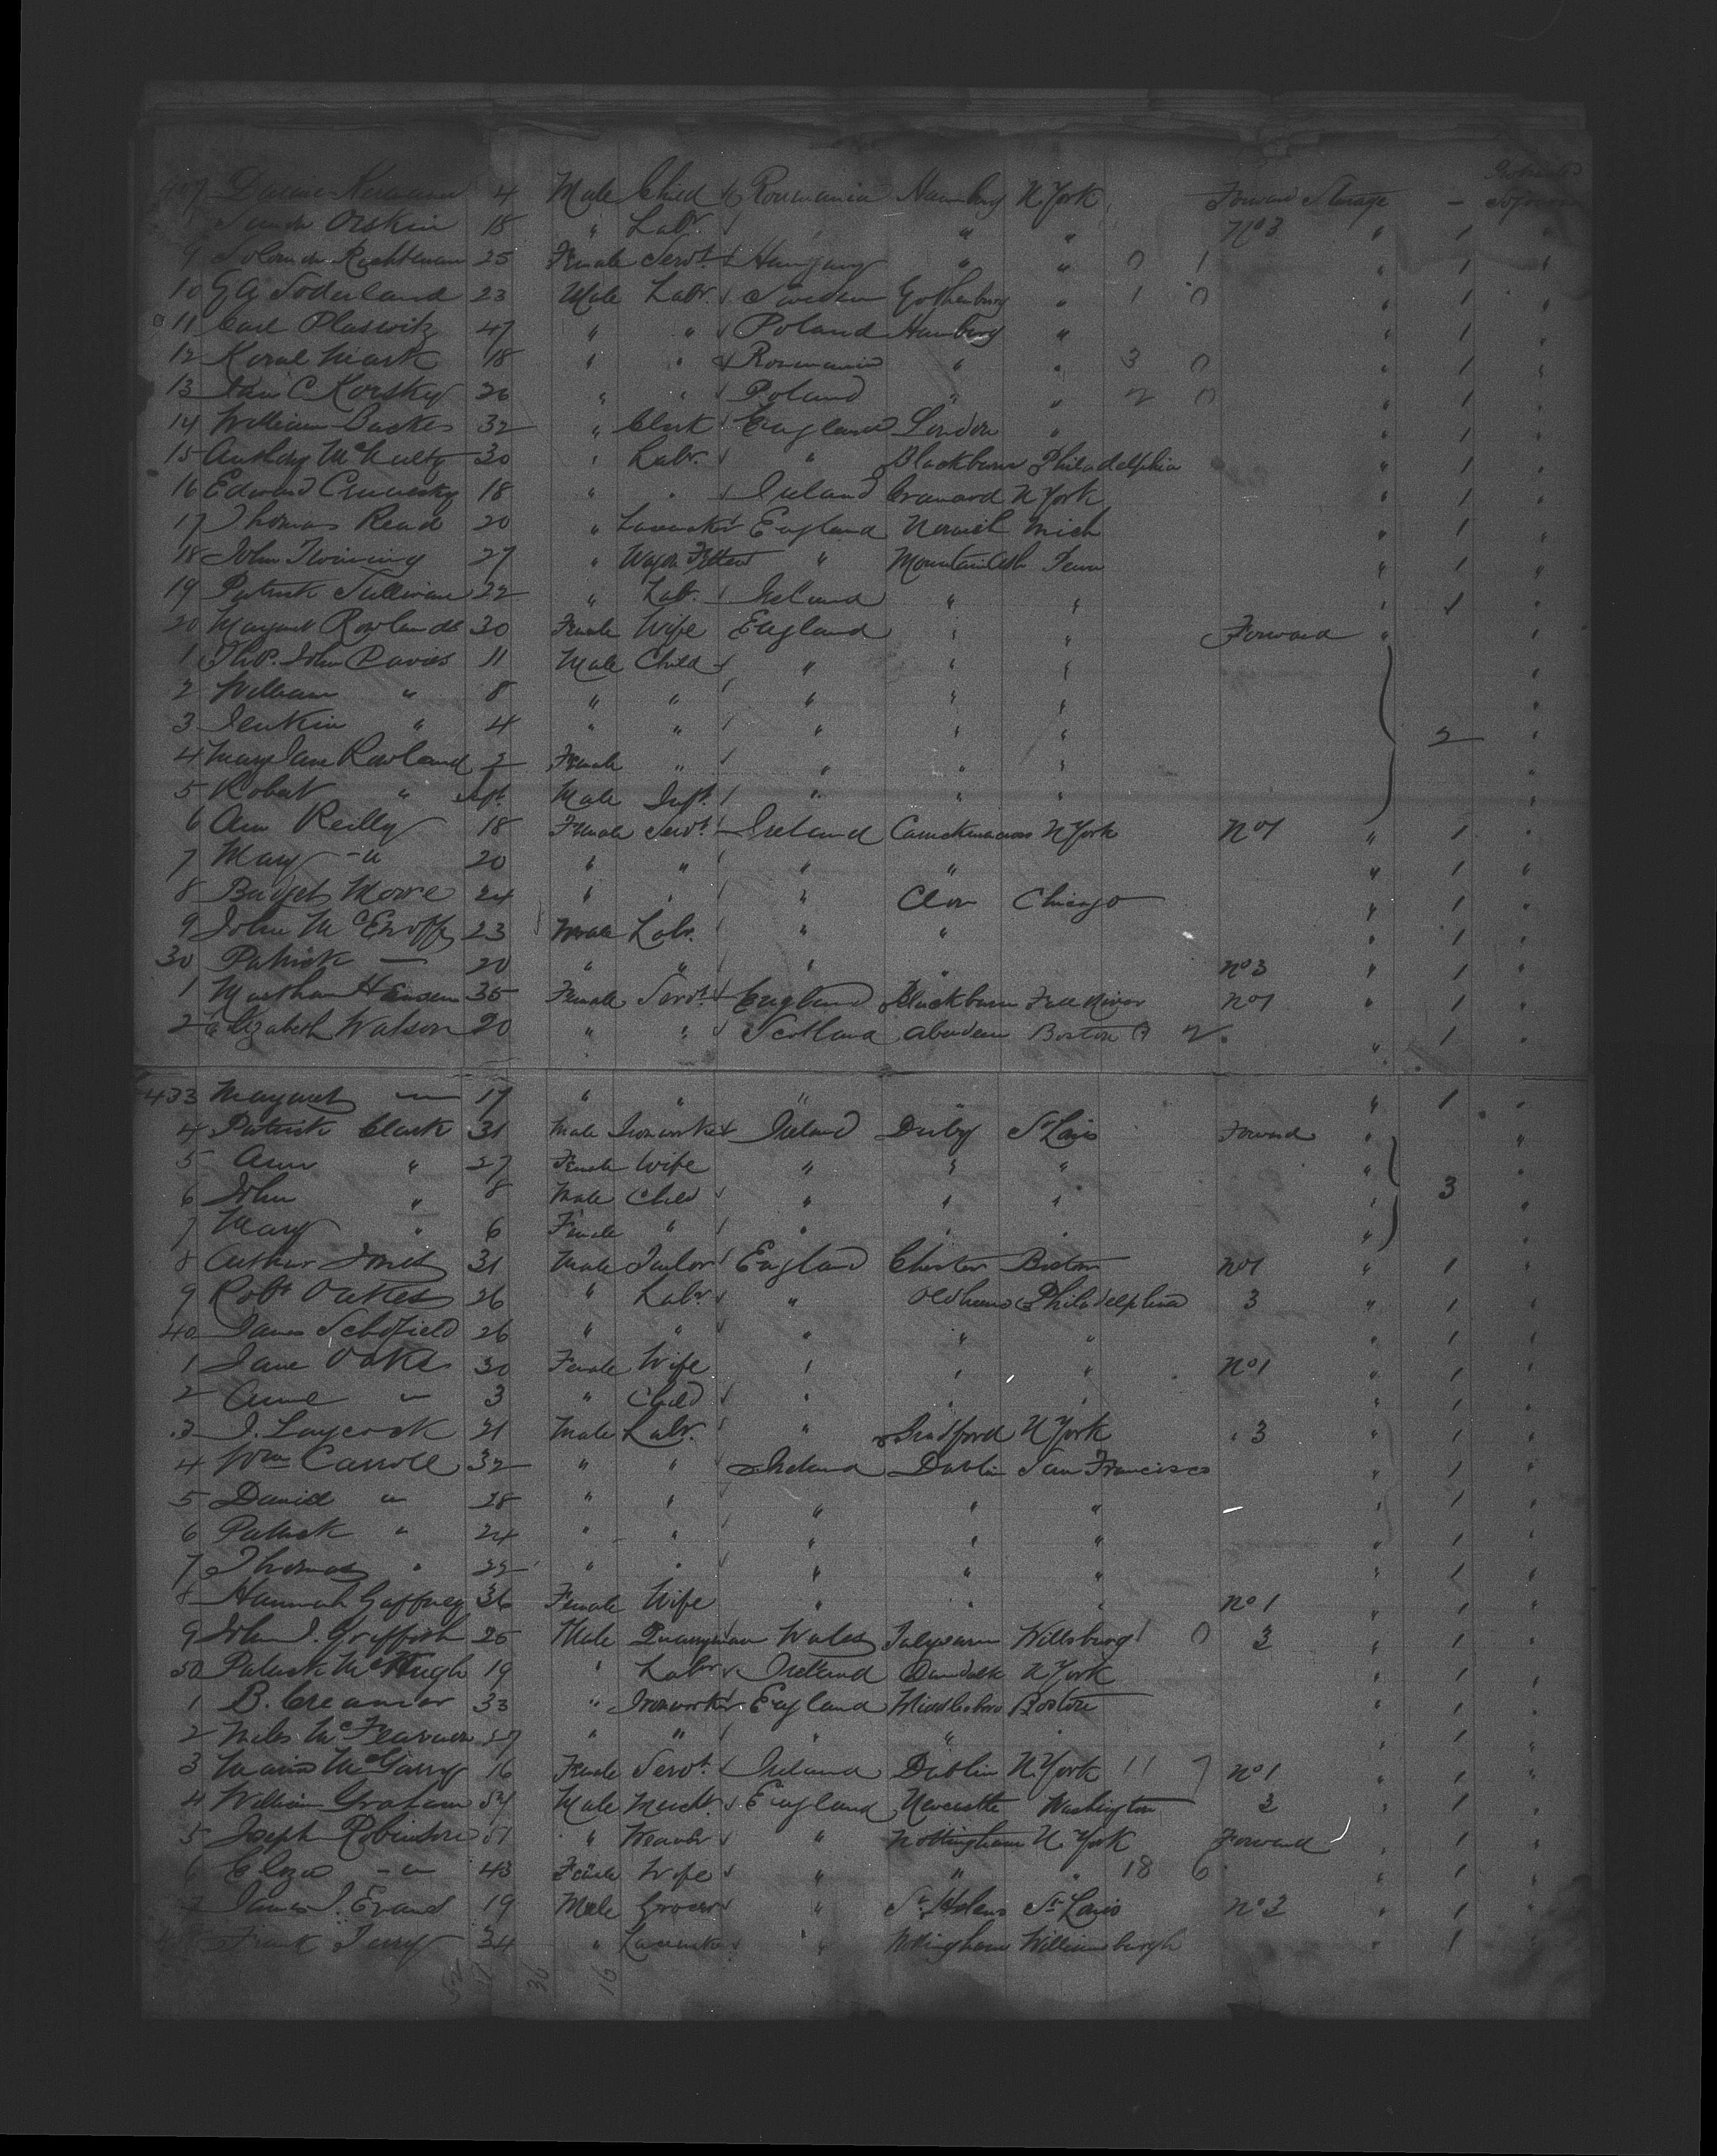 407 Kermann 4 Male Child Roumania Hamburg N York Forward Sterage - Protracted Sojourn
Orskin 18 " Labr. " " No 3 " 1 "
9 Richtman 25 Female Servt. Hungary " " 0 1 " 1 "
10 G A Soderland 23 Male Labr. Sweden Gothenburg " 1 0 " 1 "
11 Carl Plaswitz 47 " " Poland Hamburg " " 1 "
12 Mark 18 " " Roumania " " 3 0 " 1 "
13 C Korsky 26 " " Poland " " 2 0 " 1 "
14 William Backes 32 " Clerk England London " " 1 "
15 Anthony McNulty 30 " Labr. " Blackburn Philadelphia " 1 "
16 Edward 18 " " Ireland Granard N York " 1 "
17 Thomas Read 20 " England Norwich Mich " 1 "
18 John Twining 27 " Wagon Fitter " Mountain Ash Penn " 1 "
19 Patrick Sullivan 22 " Labr. Ireland " " " 1 "
20 Margaret Rowlands 30 Female Wife England " " Forward " "
1 Thos. John Davies 11 Male Child " " " "
2 William " 8 " " " " " "
3 Jenkin " 4 " " " " " 2 "
4 Mary Jane Rowland 2 Female " " " " "
5 Robert " Inft. Male Inft. " " " "
6 Ann Reilly 18 Female Servt. Ireland Carrickmacross N York No 1 " 1 "
7 Mary -"- 20 " " " " " 1 "
8 Bridget Moore 24 " " " Chicago " 1 "
9 John 23 Male Labr. " " " 1 "
30 Patrick — 20 " " " " No 3 " 1 "
1 Martha 35 Female Servt. England Blackburn Fall River No 1 " 1 "
2 Elizabeth Watson 20 " " Scotland Aberdeen Boston 2 " 1 "
433 Margaret — 17 " " " " " 1 "
4 Patrick Clark 31 Male Ironworker Ireland Derby St Louis Forward " "
5 Ann " 27 Female Wife " " " " "
6 John " 8 Male Child " " " " 3 "
7 Mary " 6 Female " " " " " "
8 Arthur Jones 31 Male Tailor England Chester Boston No 1 " 1 "
9 Robt Oakes 26 " Labr. " Oldham Philadelphia 3 " 1 "
40 James Schofield 26 " " " " " " 1 "
1 Jane Oakes 30 Female Wife " " " No 1 " 1 "
2 Anne " 3 " Child " " " " 1 "
3 J. Laycock 21 Male Labr. " Bradford N York " 3 " 1 "
4 Wm Carroll 32 " " Ireland Dublin San Francisco " 1 "
5 David " 28 " " " " " " 1 "
6 Patrick " 24 " " " " " " 1 "
7 Thomas " 22 " " " " " " 1 "
8 Hannah Gaffney 36 Female Wife " " " No 1 " 1 "
9 John J. Griffith 25 Male Quarryman Wales Talysarn Willsburg 1 0 3 " 1 "
50 Patrick McHugh 19 " Labr. Ireland Dundalk N York " 1 "
1 B. Creamer 33 " Ironworker England Middlesboro Boston " 1 "
2 Miles 27 " " " " " " 1 "
3 Maria McGarry 16 Female Servt. Ireland Dublin N. York 11 7 No 1 " 1 "
4 William Graham 54 Male Mercht. England Newcastle Washington 3 " 1 "
5 Joseph Robinson 51 " Weaver " Nottingham N. York Forward " 1 "
6 Eliza -"- 43 Female Wife " " " 18 6 " 1 "
7 James J. Evans 19 Male Grocer " St Helens St Louis No 3 " 1 "
Frank Terry 34 " " Nottingham Williamsburgh " 1 "
36 16